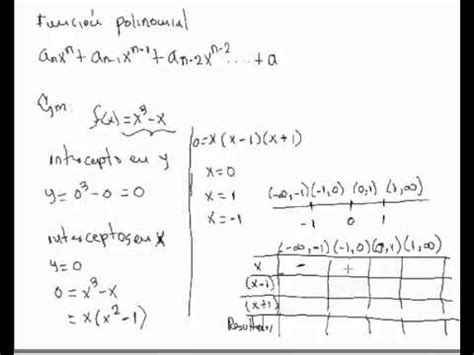 Función polinomial
aₙxⁿ + aₙ₋₁xⁿ⁻¹ + aₙ₋₂xⁿ⁻² .... + a
f(x) = x³ - x
intercepto en y
y = 0³ - 0 = 0
interceptos en x
y = 0
0 = x³ - x
= x(x² - 1)
0 = x(x-1)(x+1)
x = 0
x = 1
x = -1
(-∞,-1) (-1,0) (0,1) (1,∞)
-1 0 1
(-∞,-1) (-1,0) (0,1) (1,∞)
x - +
(x-1)
(x+1)
Resultado